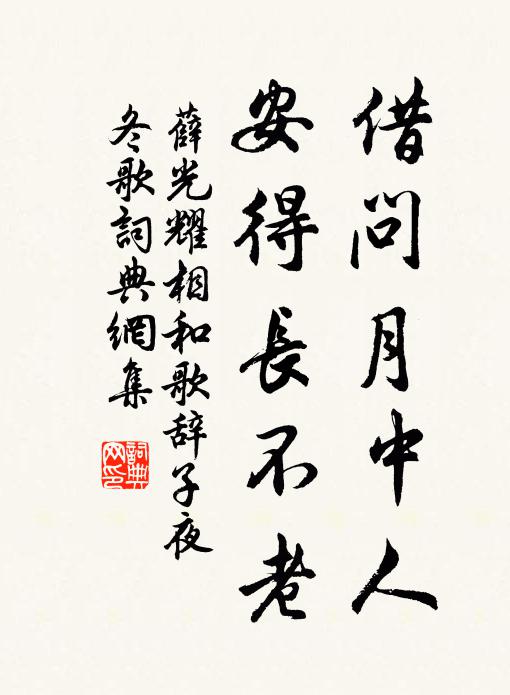 借问月中人
安得長不老
薛光耀相和歌辞子夜
冬歌詞典網集
詞典网印